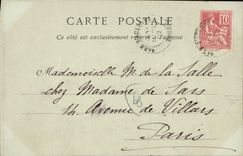 CARTE POSTALE
Ce côté est exclusivement réservé à l'adresse
10
Mademoiselle M de la Salle
chez Madame de Sars
14 Avenue de Villars
Paris